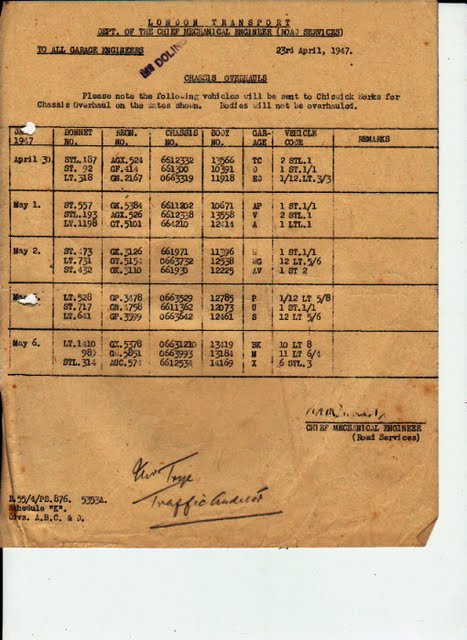 LONDON TRANSPORT
DEPT. OF THE CHIEF MECHANICAL ENGINEER (ROAD SERVICES)
TO ALL GARAGE ENGINEERS 23rd April, 1947.
CHASSIS OVERHAULS
Please note the following vehicles will be sent to Chiswick Works for
Chassis Overhaul on the dates shown. Bodies will not be overhauled.
1947 BONNET NO. REGN. NO. CHASSIS NO. BODY NO. GAR-AGE VEHICLE CODE REMARKS
April 30. STL.187 AGX.524 6612332 13566 TC 2 STL.1
ST. 92 GF.414 661300 10391 1 ST.1/1
LT.318 GN.2167 0663319 11918 1/12.LT.3/3
May 1. ST.557 GK.5384 6611202 10671 AP 1 ST.1/1
STL.193 AGX.526 6612338 13558 V 2 STL.1
LT.1198 GT.5101 664210 12414 A 1 LTL.1
May 2. ST.473 GK.3126 661971 11396 1 ST.1/1
LT.731 GT.5154 0663732 12538 12 LT.5/6
ST.432 GK.3110 661930 12225 AV 1 ST 2
LT.528 GP.3478 0663529 12785 P 1/12 LT 5/8
ST.717 GN.4758 6611362 12073 1 ST.1/1
LT.641 GP.3599 0663642 12461 S 12 LT 5/6
May 6. LT.1410 GX.5378 06631210 13419 BK 10 LT 8
989 5851 0663993 13184 M 11 LT 6/4
STL.314 574 6612534 14169 X 6 STL.3
CHIEF MECHANICAL ENGINEER
(Road Services)
Traffic Auditor
R.55/4/PS.876. 5353A.
Schedule "K".
Divs. A.B.C. & D.